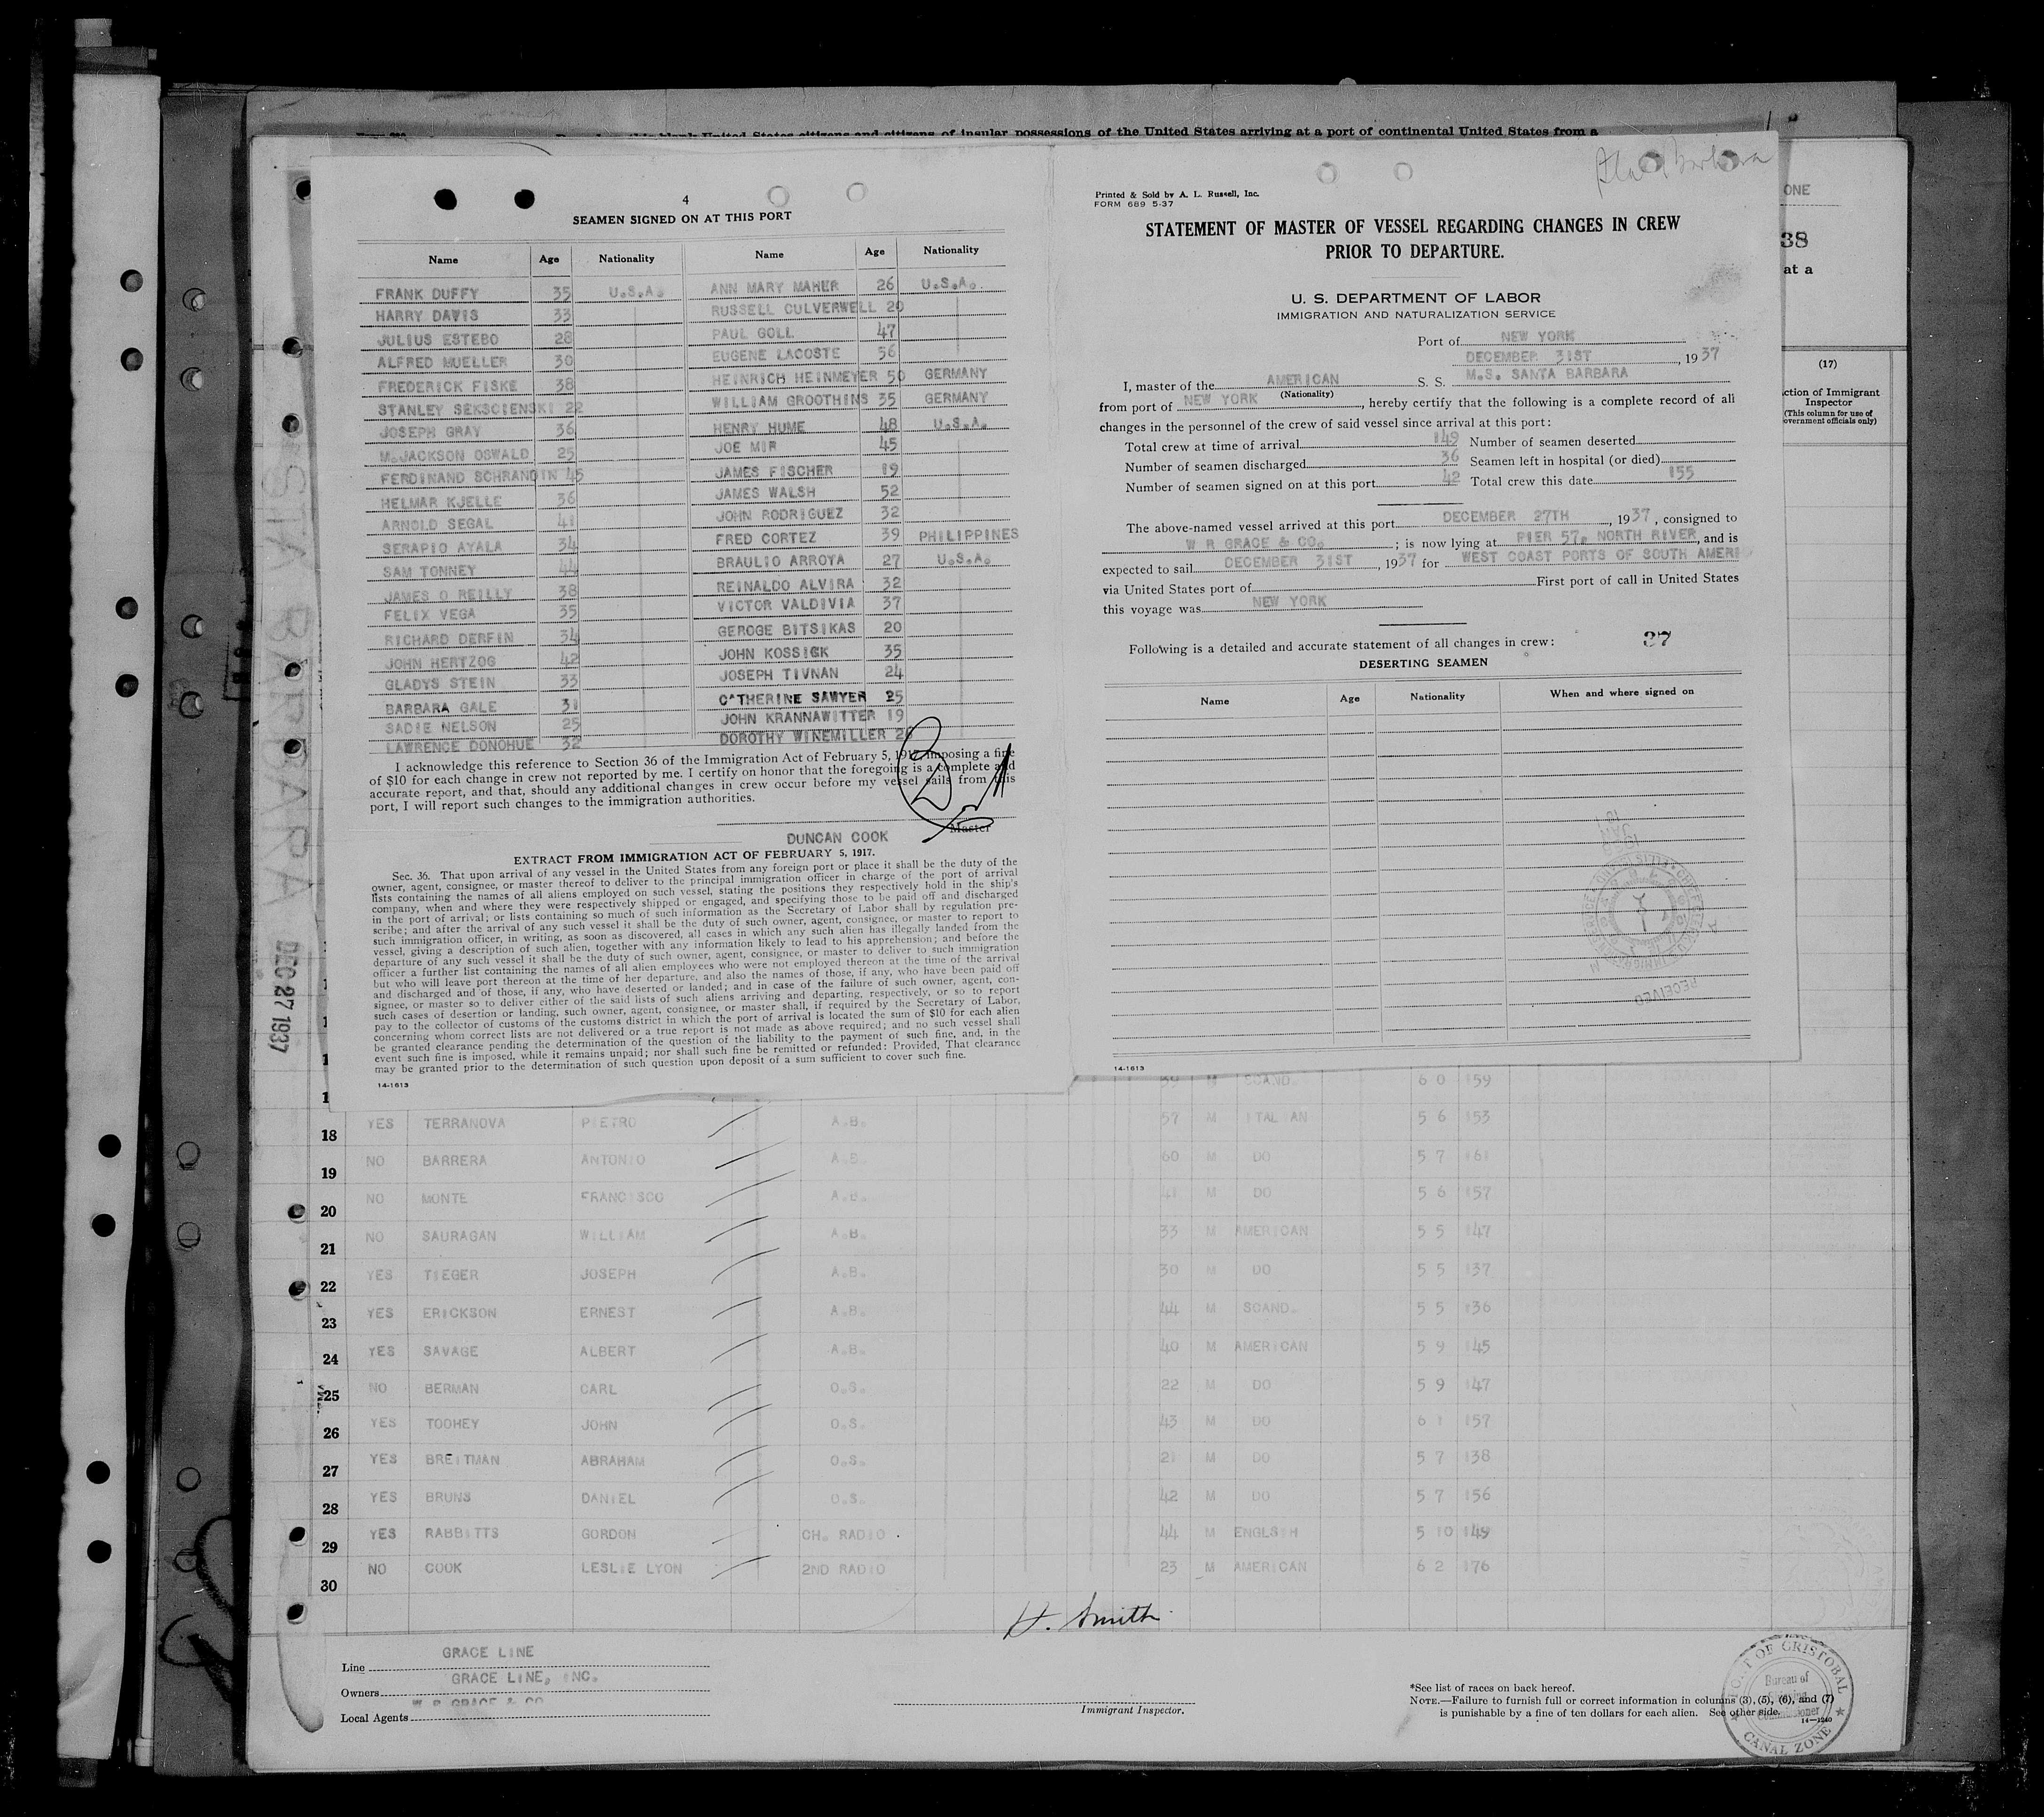 United States citizens and citizens of insular possessions of the United States arriving at a port of continental United States from a
4
SEAMEN SIGNED ON AT THIS PORT
Name Age Nationality Name Age Nationality
FRANK DUFFY 35 U.S.A. ANN MARY MAHER 26 U.S.A.
HARRY DAVIS 33 RUSSELL CULVERWELL 20
JULIUS ESTEBO 28 PAUL GOLL 47
ALFRED MUELLER 30 EUGENE LACOSTE 56
FREDERICK FISKE 38 HEINRICH HEINMEYER 50 GERMANY
STANLEY SEKSCIENSKI 22 WILLIAM GROOTHINS 35 GERMANY
JOSEPH GRAY 36 HENRY HUME 48 U.S.A.
M.JACKSON OSWALD 25 JOE MIR 45
FERDINAND SCHRANDIN 45 JAMES FISCHER 19
HELMAR KJELLE 36 JAMES WALSH 52
ARNOLD SEGAL 41 JOHN RODRIGUEZ 32
SERAPIO AYALA 34 FRED CORTEZ 39 PHILIPPINES
SAM TONNEY 44 BRAULIO ARROYA 27 U.S.A.
JAMES O REILLY 38 REINALDO ALVIRA 32
FELIX VEGA 35 VICTOR VALDIVIA 37
RICHARD DERFIN 34 GEROGE BITSIKAS 20
JOHN HERTZOG 42 JOHN KOSSICK 35
GLADYS STEIN 33 JOSEPH TIVNAN 24
BARBARA GALE 31 CATHERINE SAWYER 25
SADIE NELSON 25 JOHN KRANNAWITTER 19
LAWRENCE DONOHUE 32 DOROTHY WINEMILLER 26
I acknowledge this reference to Section 36 of the Immigration Act of February 5, 1917 imposing a fine
of $10 for each change in crew not reported by me. I certify on honor that the foregoing is a complete and
accurate report, and that, should any additional changes in crew occur before my vessel sails from this
port, I will report such changes to the immigration authorities.
Master
DUNCAN COOK
EXTRACT FROM IMMIGRATION ACT OF FEBRUARY 5, 1917.
Sec. 36. That upon arrival of any vessel in the United States from any foreign port or place it shall be the duty of the
owner, agent, consignee, or master thereof to deliver to the principal immigration officer in charge of the port of arrival
lists containing the names of all aliens employed on such vessel, stating the positions they respectively hold in the ship's
company, when and where they were respectively shipped or engaged, and specifying those to be paid off and discharged
in the port of arrival; or lists containing so much of such information as the Secretary of Labor shall by regulation pre-
scribe; and after the arrival of any such vessel it shall be the duty of such owner, agent, consignee, or master to report to
such immigration officer, in writing, as soon as discovered, all cases in which any such alien has illegally landed from the
vessel, giving a description of such alien, together with any information likely to lead to his apprehension; and before the
departure of any such vessel it shall be the duty of such owner, agent, consignee, or master to deliver to such immigration
officer a further list containing the names of all alien employees who were not employed thereon at the time of the arrival
but who will leave port thereon at the time of her departure, and also the names of those, if any, who have been paid off
and discharged and of those, if any, who have deserted or landed; and in case of the failure of such owner, agent, con-
signee, or master so to deliver either of the said lists of such aliens arriving and departing, respectively, or so to report
such cases of desertion or landing, such owner, agent, consignee, or master shall, if required by the Secretary of Labor,
pay to the collector of customs of the customs district in which the port of arrival is located the sum of $10 for each alien
concerning whom correct lists are not delivered or a true report is not made as above required; and no such vessel shall
be granted clearance pending the determination of the question of the liability to the payment of such fine, and, in the
event such fine is imposed, while it remains unpaid; nor shall such fine be remitted or refunded: Provided, That clearance
may be granted prior to the determination of such question upon deposit of a sum sufficient to cover such fine.
14-1613
Printed & Sold by A. L. Russell, Inc.
FORM 689 5-37
Barbara
STATEMENT OF MASTER OF VESSEL REGARDING CHANGES IN CREW
PRIOR TO DEPARTURE.
U. S. DEPARTMENT OF LABOR
IMMIGRATION AND NATURALIZATION SERVICE
Port of NEW YORK
DECEMBER 31ST, 1937
I, master of the AMERICAN S. S. M.S. SANTA BARBARA
(Nationality)
from port of NEW YORK, hereby certify that the following is a complete record of all
changes in the personnel of the crew of said vessel since arrival at this port:
Total crew at time of arrival 149 Number of seamen deserted
Number of seamen discharged 36 Seamen left in hospital (or died)
Number of seamen signed on at this port 42 Total crew this date 155
The above-named vessel arrived at this port DECEMBER 27TH, 1937, consigned to
W R GRACE & CO. ; is now lying at PIER 57, NORTH RIVER, and is
expected to sail DECEMBER 31ST, 1937 for WEST COAST PORTS OF SOUTH AMERI
via United States port of First port of call in United States
this voyage was NEW YORK
Following is a detailed and accurate statement of all changes in crew: 37
DESERTING SEAMEN
Name Age Nationality When and where signed on
RECEIVED
14-1613
ONE
38
at a
(17)
ction of Immigrant
Inspector
(This column for use of
overnment officials only)
STA BARBARA
DEC 27 1937
39 M SCAND. 6 0 159
18 YES TERRANOVA PIETRO A.B. 57 M ITALIAN 5 6 153
19 NO BARRERA ANTONIO A.B. 60 M DO 5 7 161
20 NO MONTE FRANCISCO A.B. 41 M DO 5 6 157
21 NO SAURAGAN WILLIAM A.B. 33 M AMERICAN 5 5 147
22 YES TIEGER JOSEPH A.B. 30 M DO 5 5 137
23 YES ERICKSON ERNEST A.B. 44 M SCAND. 5 5 136
24 YES SAVAGE ALBERT A.B. 40 M AMERICAN 5 9 145
25 NO BERMAN CARL O.S. 22 M DO 5 9 147
26 YES TOOHEY JOHN O.S. 43 M DO 6 1 157
27 YES BREITMAN ABRAHAM O.S. 21 M DO 5 7 138
28 YES BRUNS DANIEL O.S. 42 M DO 5 7 156
29 YES RABBITTS GORDON CH. RADIO 44 M ENGLSIH 5 10 149
30 NO COOK LESLIE LYON 2ND RADIO 23 M AMERICAN 6 2 176
H. Smith
Line GRACE LINE
Owners GRACE LINE, INC.
Local Agents W R GRACE & CO
Immigrant Inspector.
*See list of races on back hereof.
NOTE.—Failure to furnish full or correct information in columns (3), (5), (6), and (7)
is punishable by a fine of ten dollars for each alien. See other side.
14-1240
PORT OF CRISTOBAL
Bureau of
Shipping
Commissioner
CANAL ZONE